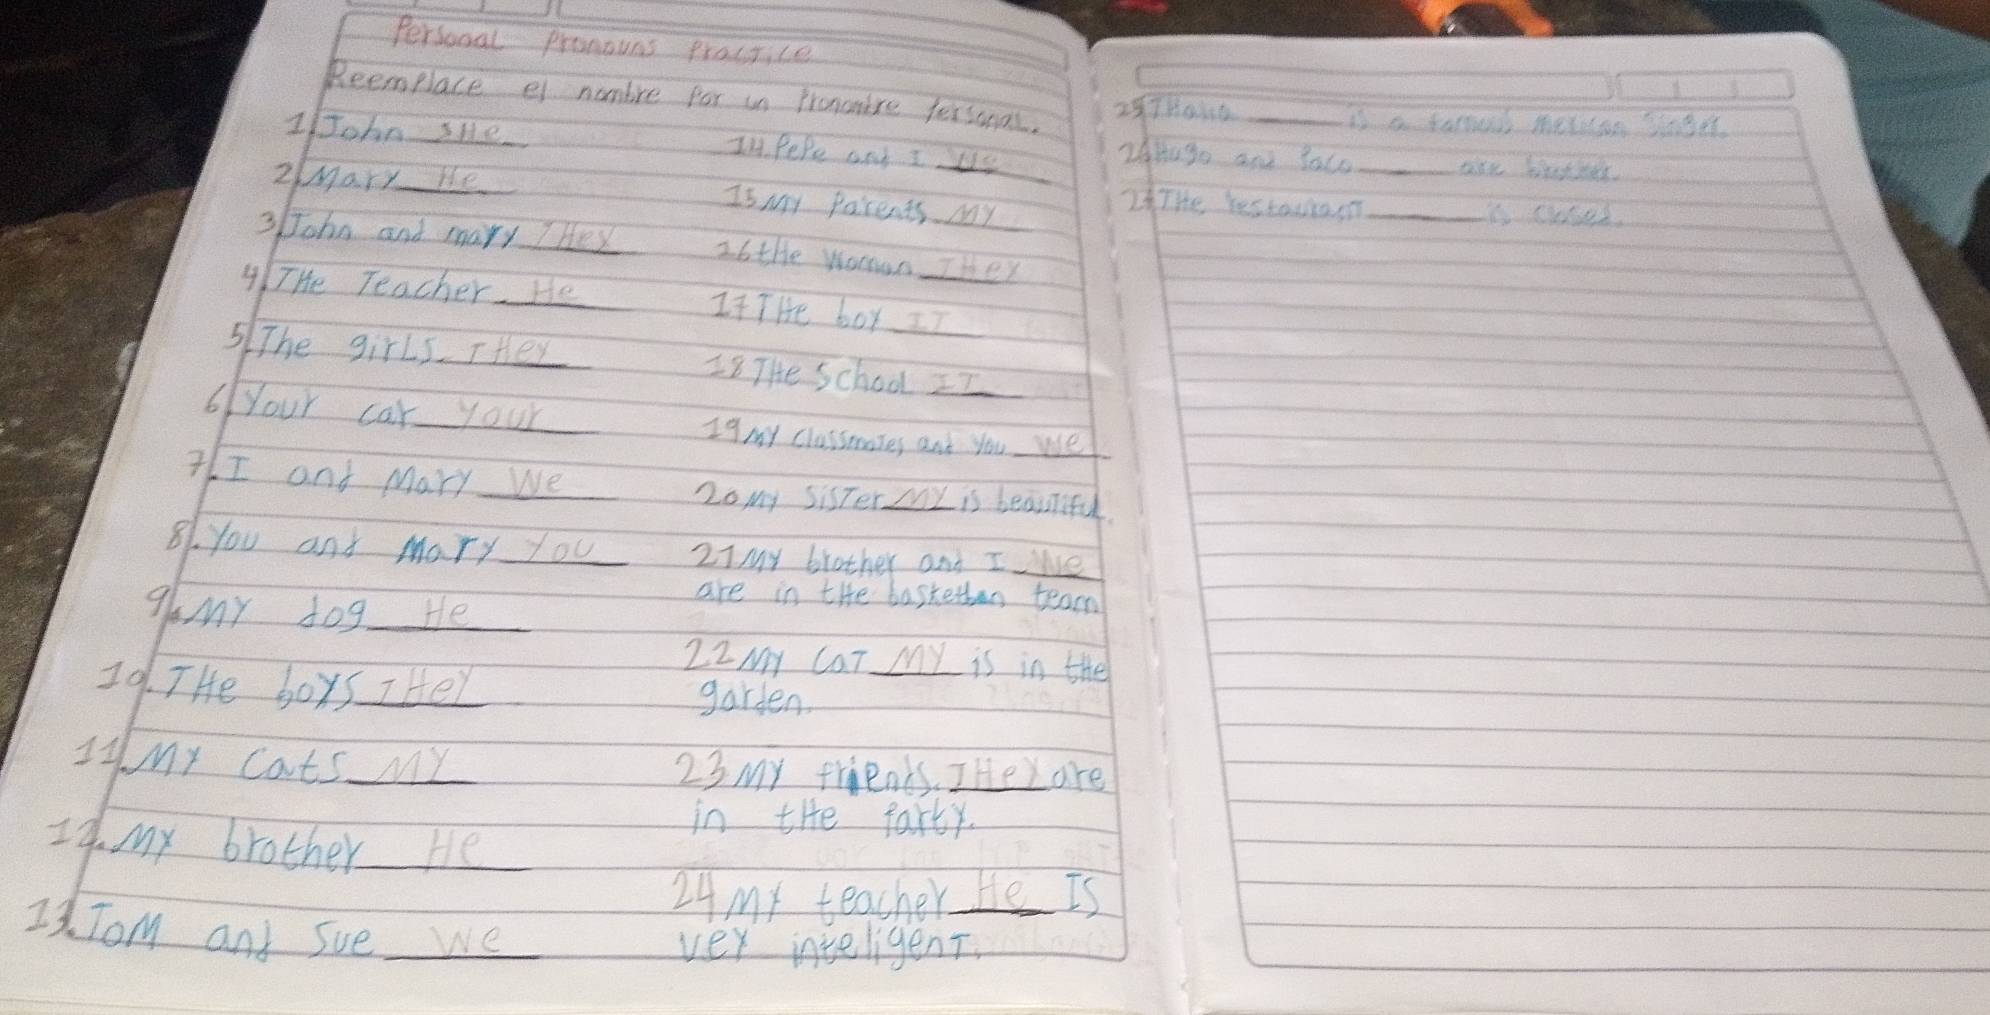 Personal Pronouns Practice
Reemplace el nombre por un Pronombre Personal.
1. John SHe
2. Mary He
3. John and mary THey
4. THe Teacher He
5. The girLs. THey
6. Your car your
7. I and Mary We
8. You and Mary You
9. MY dog He
10. THe boys THey
11. MY cats MY
12. MY brother He
13. ToM and Sue We
14. PePe and I We
15 MY Parents MY
16 tHe Woman THey
17 THe boy IT
18 THe School IT
19 MY classmates and you We
20 MY SisTer MY is beautiful.
21 MY brother and I We
are in tHe team
22 MY CaT MY is in tHe
garden.
23 MY friends. THey are
in tHe party.
24 MY teacher He IS
vey inteligenT.
25 THalia is a famous mexican singer.
26 Hugo and Paco are
27 THe restaurant is closed.